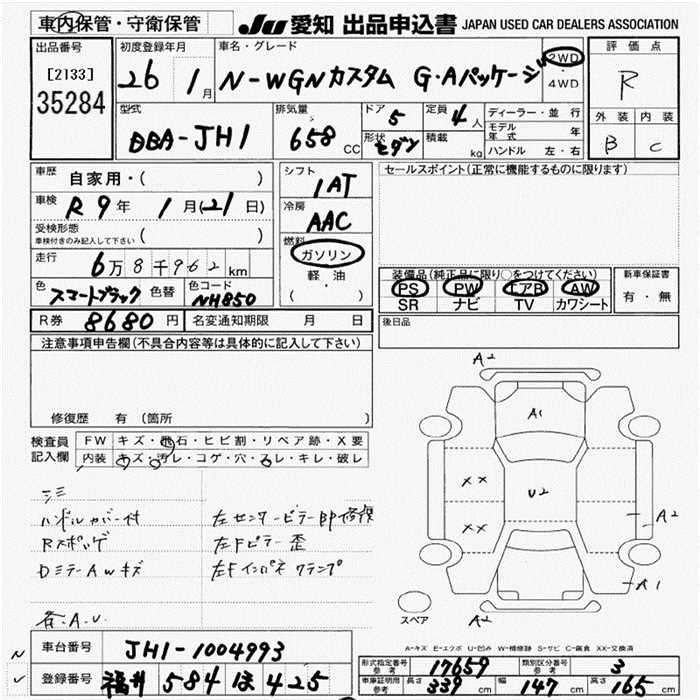 車内保管・守衛保管
JU 愛知 出品申込書 JAPAN USED CAR DEALERS ASSOCIATION
出品番号
[2133]
35284
初度登録年月
26 1月
車名・グレード
N-WGNカスタム G・Aパッケージ
2WD
・
4WD
評価点
R
外装 内装
B C
型式
DBA-JH1
排気量
658 CC
ドア 5
形状 セダン
定員 4人
積載 kg
ディーラー・並行
モデル年式 年
ハンドル 左・右
車歴 自家用・( )
車検 R9年 1月(21日)
受検形態
車検付きのみ記入して下さい ( )
走行 6万8千962km
色 スマートブラック 色替 色コード NH850
R券 8680円 名変通知期限 月 日
シフト
1AT
冷房
AAC
燃料
ガソリン
軽・油
( )
セールスポイント(正常に機能するものに限ります)
装備品(純正品に限り○をつけてください)
PS PW エアB AW
SR ナビ TV カワシート
新車保証書
有・無
後日品
注意事項申告欄(不具合内容等は具体的に記入して下さい)
修復歴 有 (箇所 )
検査員記入欄
FW キズ・飛石・ヒビ割・リペア跡・X要
内装 キズ・汚レ・コゲ・穴・スレ・キレ・破レ
ハンドルカバー付 左センターピラーBP修復
Rスポッゲ 左Fピラー歪
DミラーAwキズ 左Fインパネクランプ
各A.U.
A2
A1
XX
U2
XX
A2
A1
A2
スペア
A-キズ E-エクボ U-凹み W-補修跡 S-サビ C-腐食 XX-交換済
車台番号 JH1-1004993
登録番号 福井 584 ほ 425
型式指定番号 参考 17659 類別区分番号 参考 3
車庫証明用 参考 長さ 339 cm 幅 147 cm 高さ 165 cm